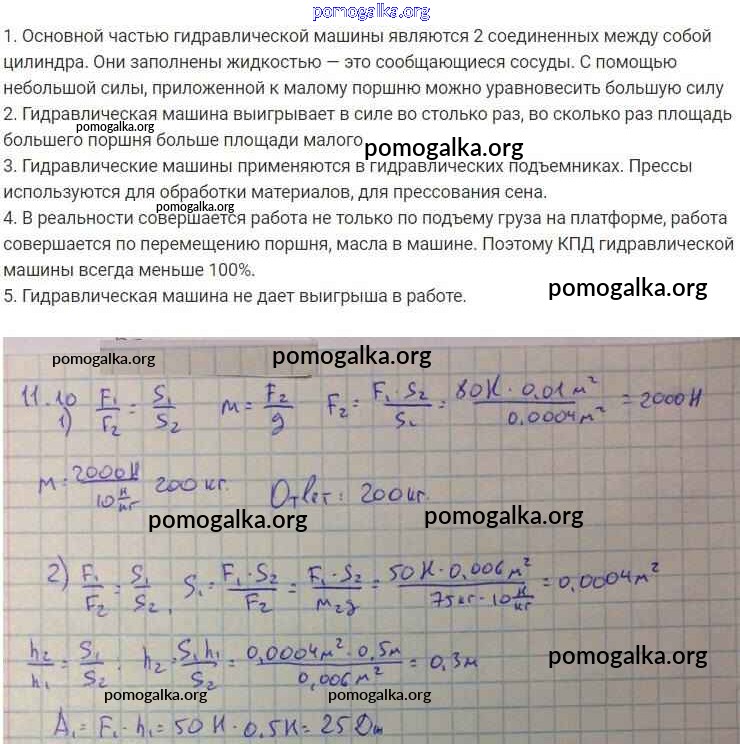 pomogalka.org
1. Основной частью гидравлической машины являются 2 соединенных между собой
цилиндра. Они заполнены жидкостью — это сообщающиеся сосуды. С помощью
небольшой силы, приложенной к малому поршню можно уравновесить большую силу
2. Гидравлическая машина выигрывает в силе во столько раз, во сколько раз площадь
большего поршня больше площади малого
pomogalka.org
pomogalka.org
3. Гидравлические машины применяются в гидравлических подъемниках. Прессы
используются для обработки материалов, для прессования сена.
pomogalka.org
4. В реальности совершается работа не только по подъему груза на платформе, работа
совершается по перемещению поршня, масла в машине. Поэтому КПД гидравлической
машины всегда меньше 100%.
5. Гидравлическая машина не дает выигрыша в работе.
pomogalka.org
pomogalka.org
pomogalka.org
11.10
1) F₁/F₂ = S₁/S₂ m = F₂/g F₂ = F₁·S₂/S₁ = 80Н · 0,01м²/0,0004м² = 2000Н
m = 2000Н/10 Н/кг 200кг. Ответ: 200кг.
pomogalka.org
pomogalka.org
2) F₁/F₂ = S₁/S₂, S₁ = F₁·S₂/F₂ = F₁·S₂/m₂g = 50Н·0,006м²/75кг·10 Н/кг = 0,0004м²
h₂/h₁ = S₁/S₂ ; h₂ = S₁h₁/S₂ = 0,0004м²·0,5м/0,006м² = 0,3м
pomogalka.org
pomogalka.org
pomogalka.org
A₁ = F₁·h₁ = 50Н·0,5Н = 25Дж